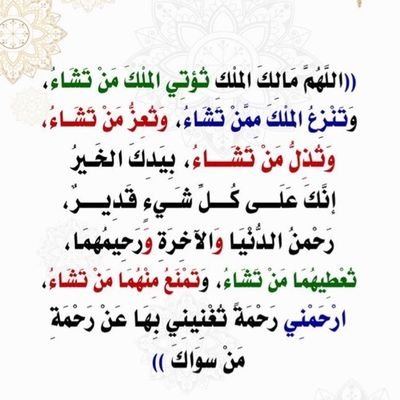 ((اللَّهُمَّ مَالكَ الملْك تُؤتي الملْكَ مَنْ تَشَاءُ،
وَتَنْزعُ الملْكَ ممَّنْ تَشَاءُ، وَتُعزُّ مَنْ تَشَـاءُ،
وَتُذلُّ مَنْ تَشَـــاءُ، بيَدكَ الخَيرُ
إنَّكَ عَلَــى كُــلِّ شَــيءٍ قَديــرٌ،
رَحْمنُ الدُّنْيا والآخرة ورَحيمُهما،
تُعْطيهُما مَنْ تَشَاءُ، وتَمْنَعُ منْهُما مَنْ تَشَاءُ،
ارْحَمْني رحْمةً تُغْنيني بها عَنْ رحْمَةِ
مَنْ سوَاكَ ))